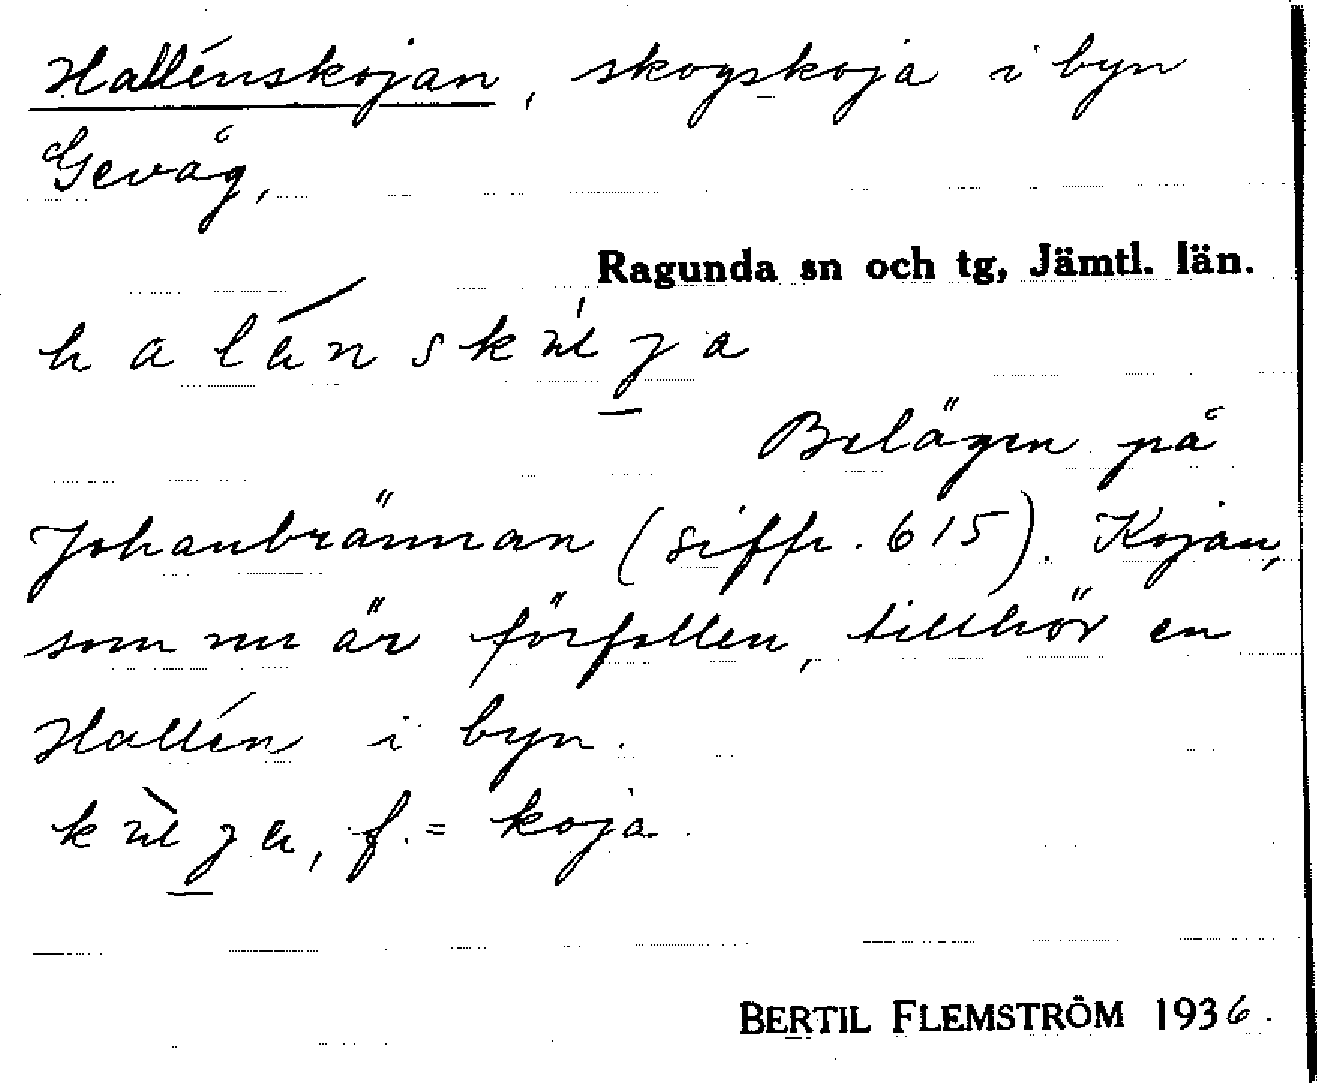 Hallénskojan, skogskoja i byn
Gevåg,
Ragunda sn och tg, Jämtl. län.
Belägen på
Johanbrännan (siffr. 615). Kojan,
som nu är förfallen, tillhör en
Hallén i byn.
f. = koja.
BERTIL FLEMSTRÖM 1936.